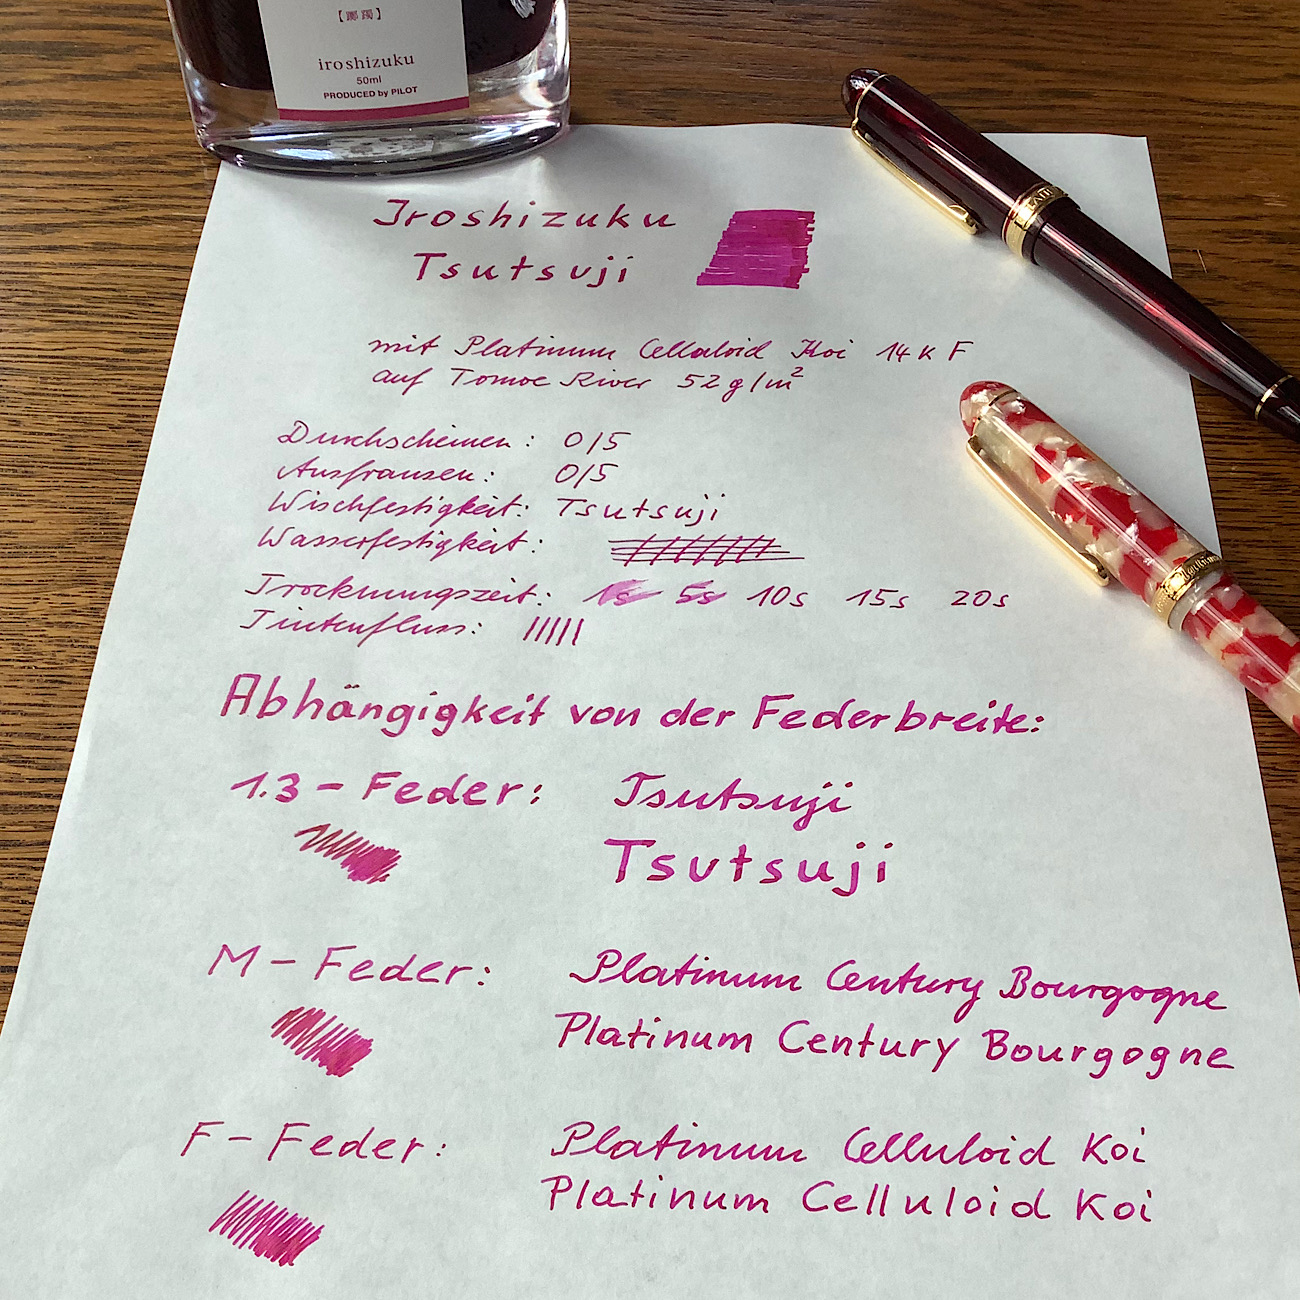 【躑躅】
iroshizuku
50ml
PRODUCED by PILOT
Iroshizuku
Tsutsuji
mit Platinum Celluloid Koi 14K F
auf Tomoe River 52g/m²
Durchscheinen: 0/5
Ausfransen: 0/5
Wischfestigkeit: Tsutsuji
Wasserfestigkeit:
Trocknungszeit: 1s 5s 10s 15s 20s
Tintenfluss:
Abhängigkeit von der Federbreite:
1.3-Feder: Tsutsuji
Tsutsuji
M-Feder: Platinum Century Bourgogne
Platinum Century Bourgogne
F-Feder: Platinum Celluloid Koi
Platinum Celluloid Koi